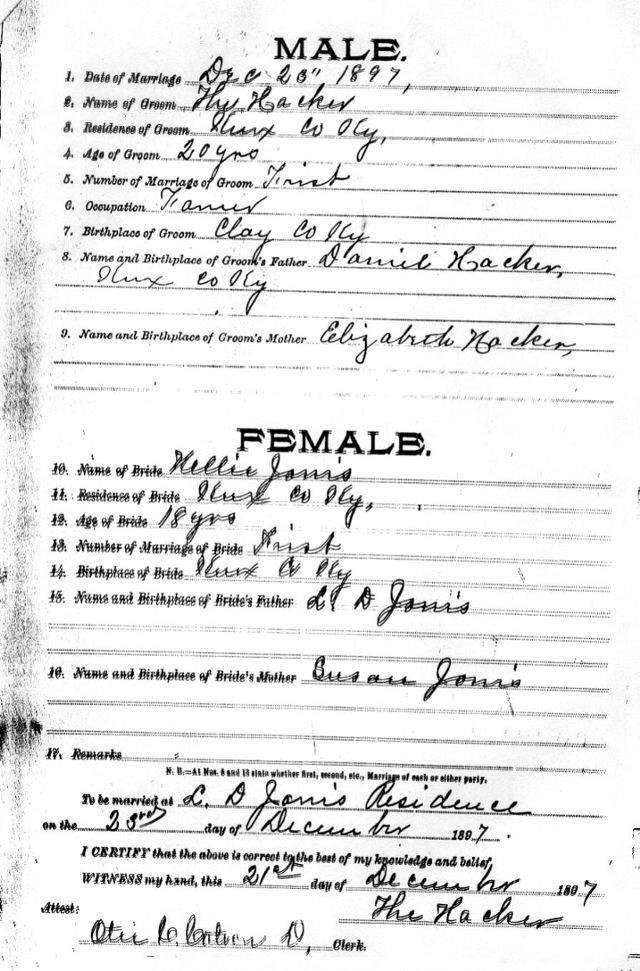 MALE.
1. Date of Marriage Dec 23" 1897,
2. Name of Groom The Hacker
3. Residence of Groom Knox Co Ky,
4. Age of Groom 20 yrs
5. Number of Marriage of Groom First
6. Occupation Farmer
7. Birthplace of Groom Clay Co Ky
8. Name and Birthplace of Groom's Father Daniel Hacker,
Knox Co Ky
9. Name and Birthplace of Groom's Mother Elizabeth Hacker,
FEMALE.
10. Name of Bride Nellie Jones
11. Residence of Bride Knox Co Ky,
12. Age of Bride 18 yrs
13. Number of Marriage of Bride First
14. Birthplace of Bride Knox Co Ky
15. Name and Birthplace of Bride's Father L. D Jones
16. Name and Birthplace of Bride's Mother Susan Jones
17. Remarks
N. B.—At Nos. 5 and 13 state whether first, second, etc., Marriage of each or either party.
To be married at L. D Jones Residence
on the 23rd day of December 1897.
I CERTIFY that the above is correct to the best of my knowledge and belief,
WITNESS my hand, this 21st day of December 1897
The Hacker
Attest:
Clerk.